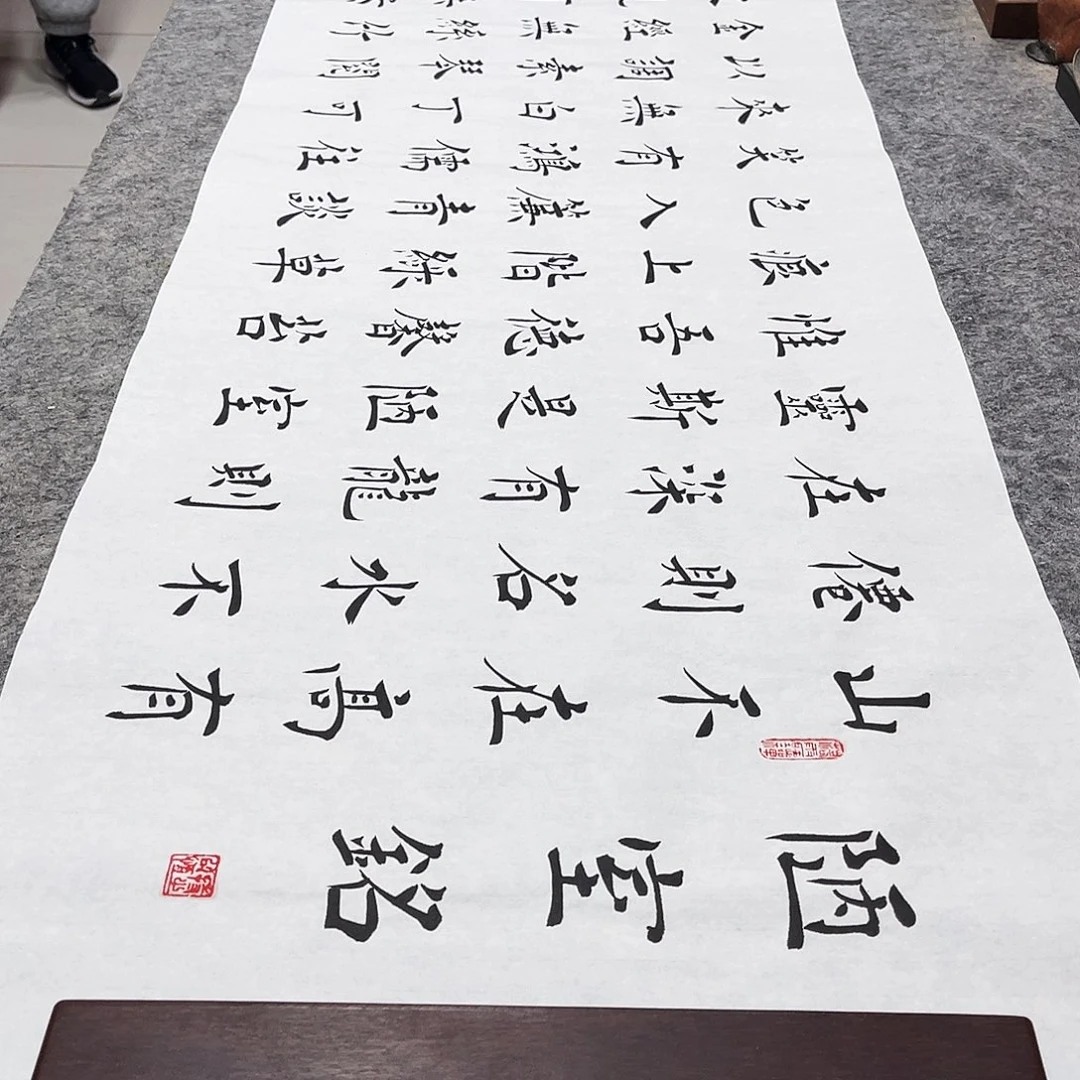 陋室銘
山不在高有
僊則名水不
在深有龍則
靈斯是陋室
惟吾德馨苔
痕上階綠草
色入簾青談
笑有鴻儒往
來無白丁可
以調素琴閱
金經無絲竹